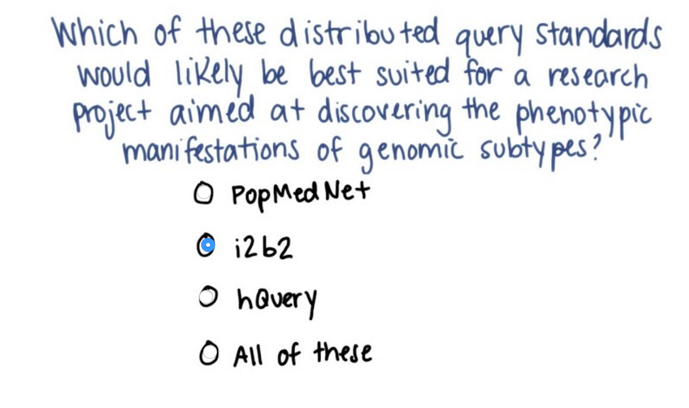 Which of these distributed query standards
would likely be best suited for a research
project aimed at discovering the phenotypic
manifestations of genomic subtypes?
PopMedNet
i2b2
hQuery
All of these